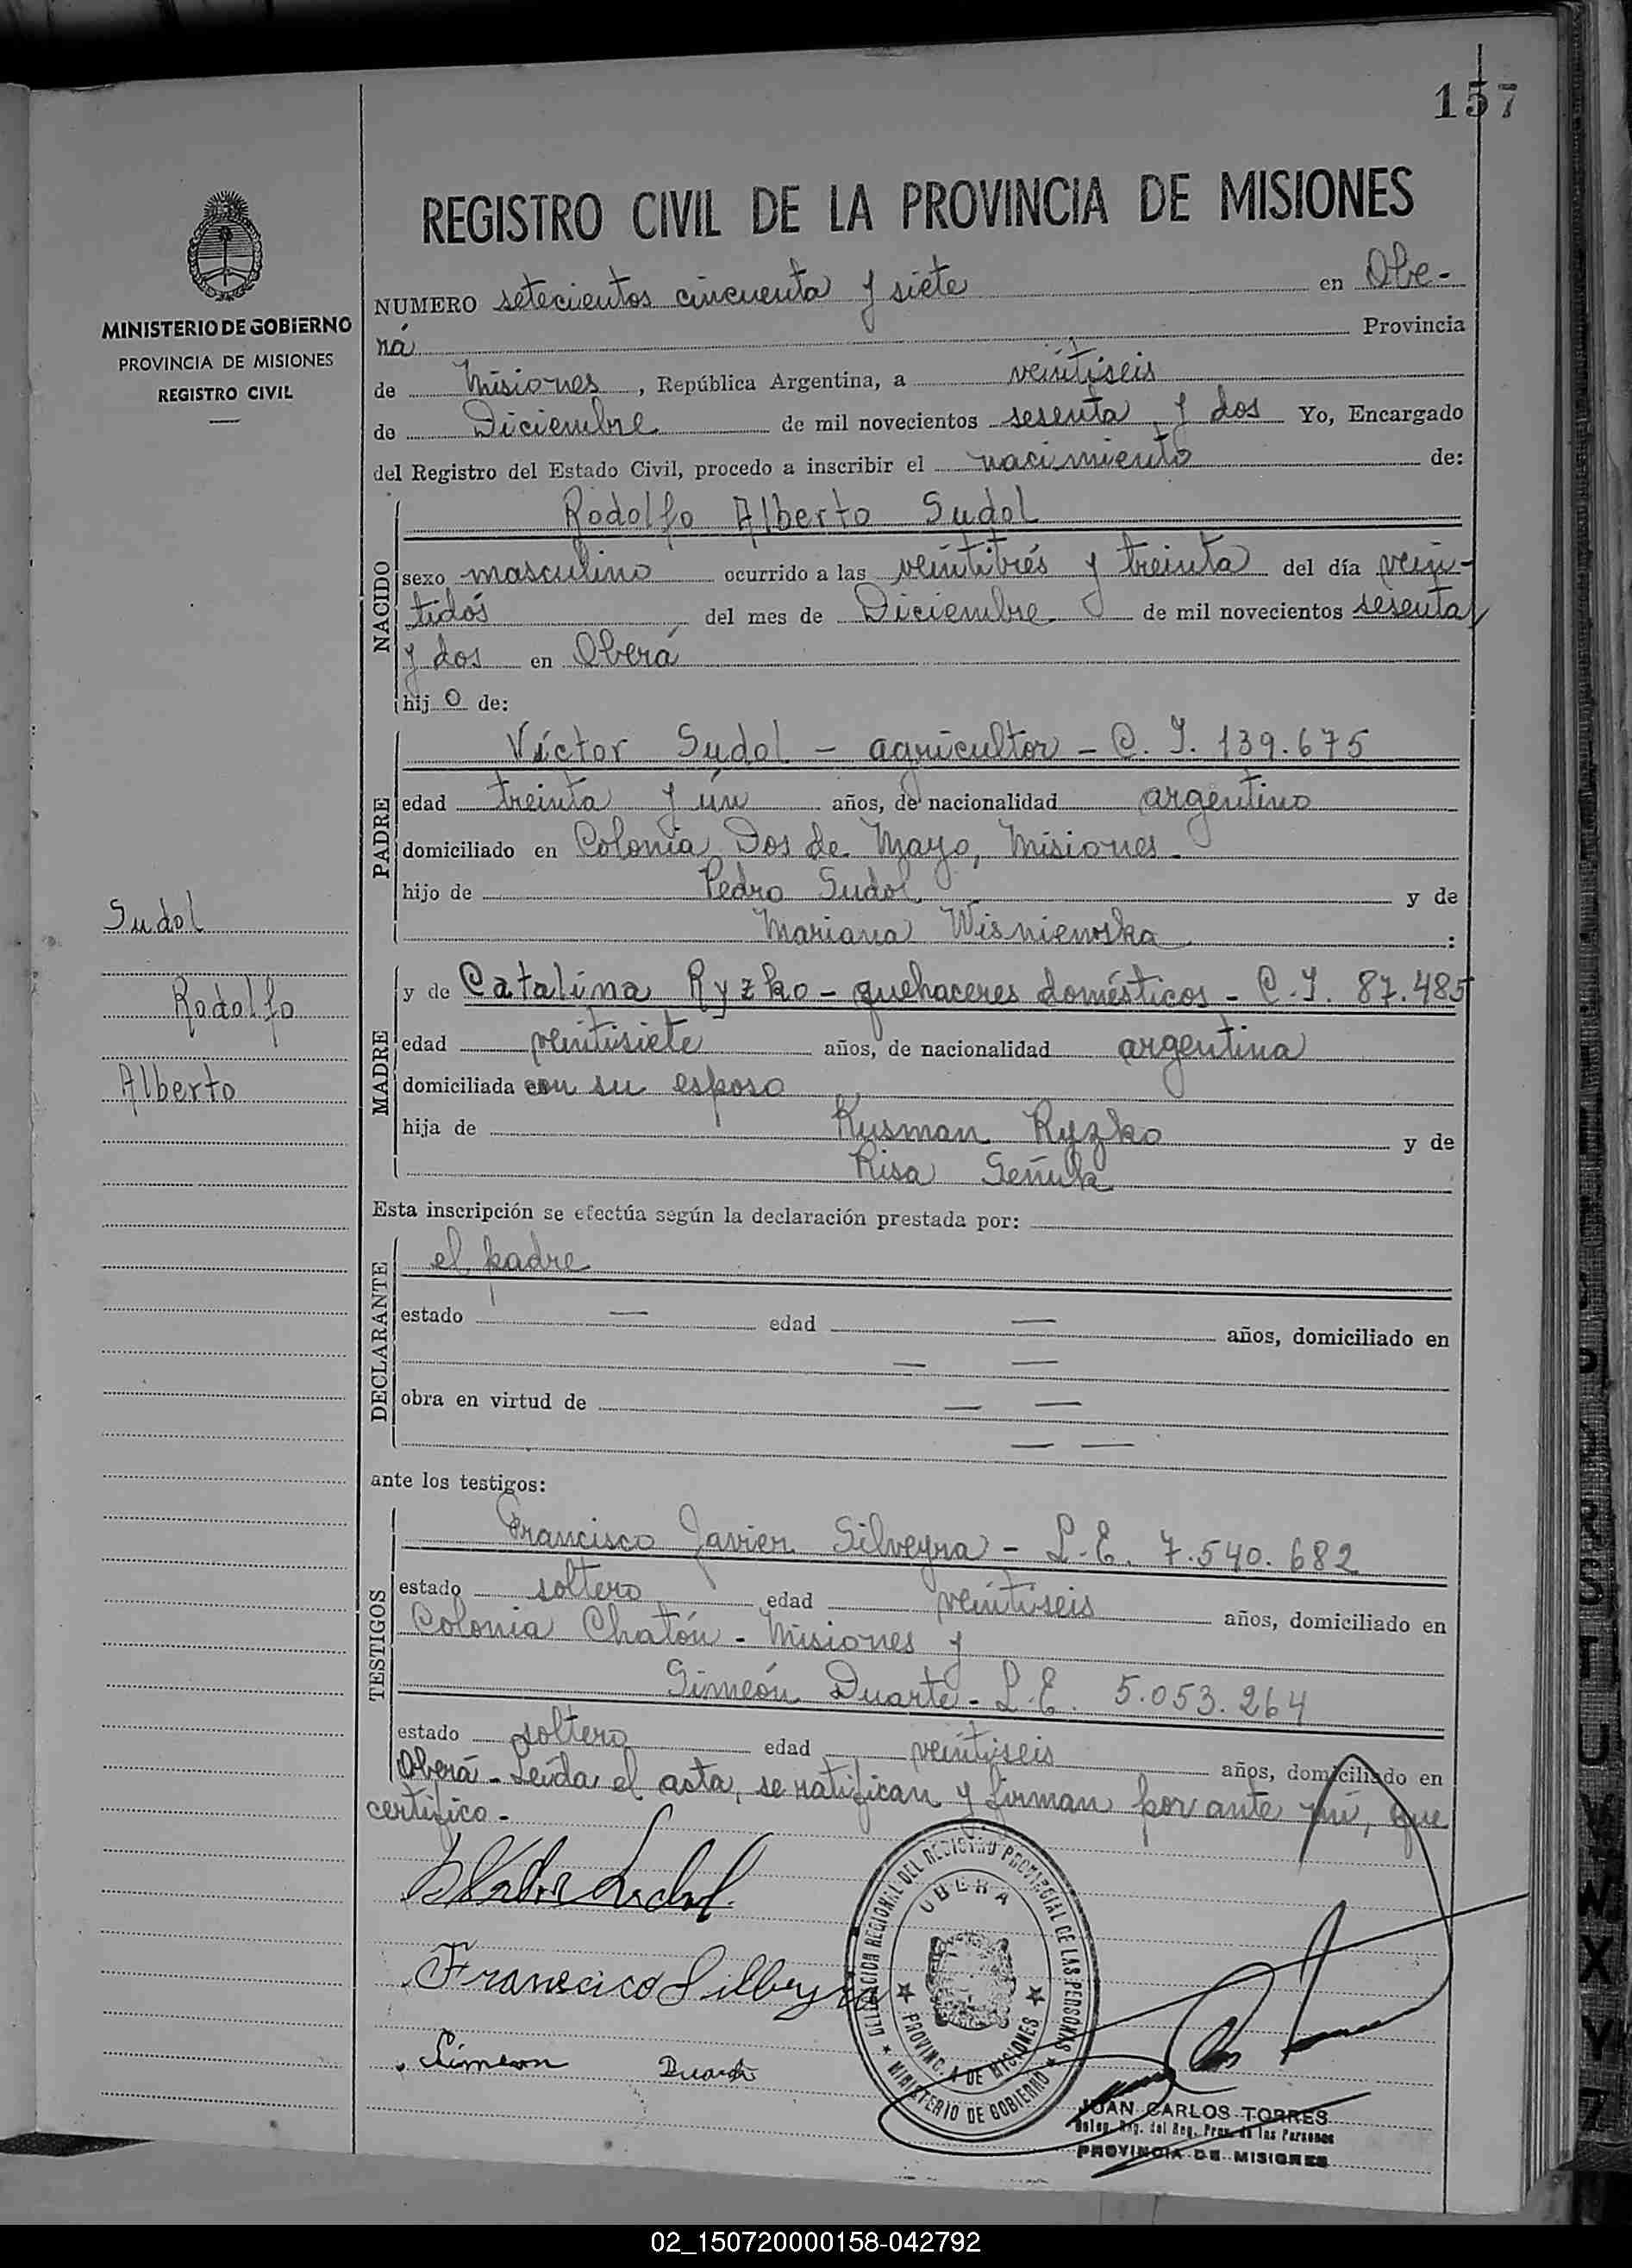 157
REGISTRO CIVIL DE LA PROVINCIA DE MISIONES
MINISTERIO DE GOBIERNO
PROVINCIA DE MISIONES
REGISTRO CIVIL
NUMERO setecientos cincuenta y siete en Obe-
rá Provincia
de Misiones, República Argentina, a veintiseis
de Diciembre de mil novecientos sesenta y dos Yo, Encargado
del Registro del Estado Civil, procedo a inscribir el nacimiento de:
NACIDO
Rodolfo Alberto Sudol
sexo masculino ocurrido a las veintitrés y treinta del día vein-
tidós del mes de Diciembre de mil novecientos sesenta
y dos en Oberá
hijo de:
PADRE
Víctor Sudol - agricultor - C. I. 139.675
edad treinta y un años, de nacionalidad argentino
domiciliado en Colonia Dos de Mayo, Misiones-
hijo de Pedro Sudol y de
Mariana Wisniewska :
MADRE
y de Catalina Ryzko - quehaceres domésticos - C.I. 87.485
edad veintisiete años, de nacionalidad argentina
domiciliada con su esposo
hija de Kusman Ryzko y de
Risa
Esta inscripción se efectúa según la declaración prestada por:
DECLARANTE
el padre
estado — edad — años, domiciliado en
— —
obra en virtud de — —
— —
ante los testigos:
TESTIGOS
Francisco Javier Silveyra - L.E. 7.540.682
estado soltero edad veintiseis años, domiciliado en
Colonia Chatón - Misiones y
Simeón Duarte - L.E. 5.053.264
estado soltero edad veintiseis años, domiciliado en
Oberá - Leída el acta, se ratifican y firman por ante mí, que
certifico -
Sudol
Rodolfo
Alberto
Francicico Silbeyra
Simeon Duarte
DELEGACION REGIONAL DEL REGISTRO PROVINCIAL DE LAS PERSONAS
MINISTERIO DE GOBIERNO
OBERA
PROVINCIA DE MISIONES
JUAN CARLOS TORRES
Deleg. Reg. del Reg. Prov. de las Personas
PROVINCIA DE MISIONES
02_150720000158-042792